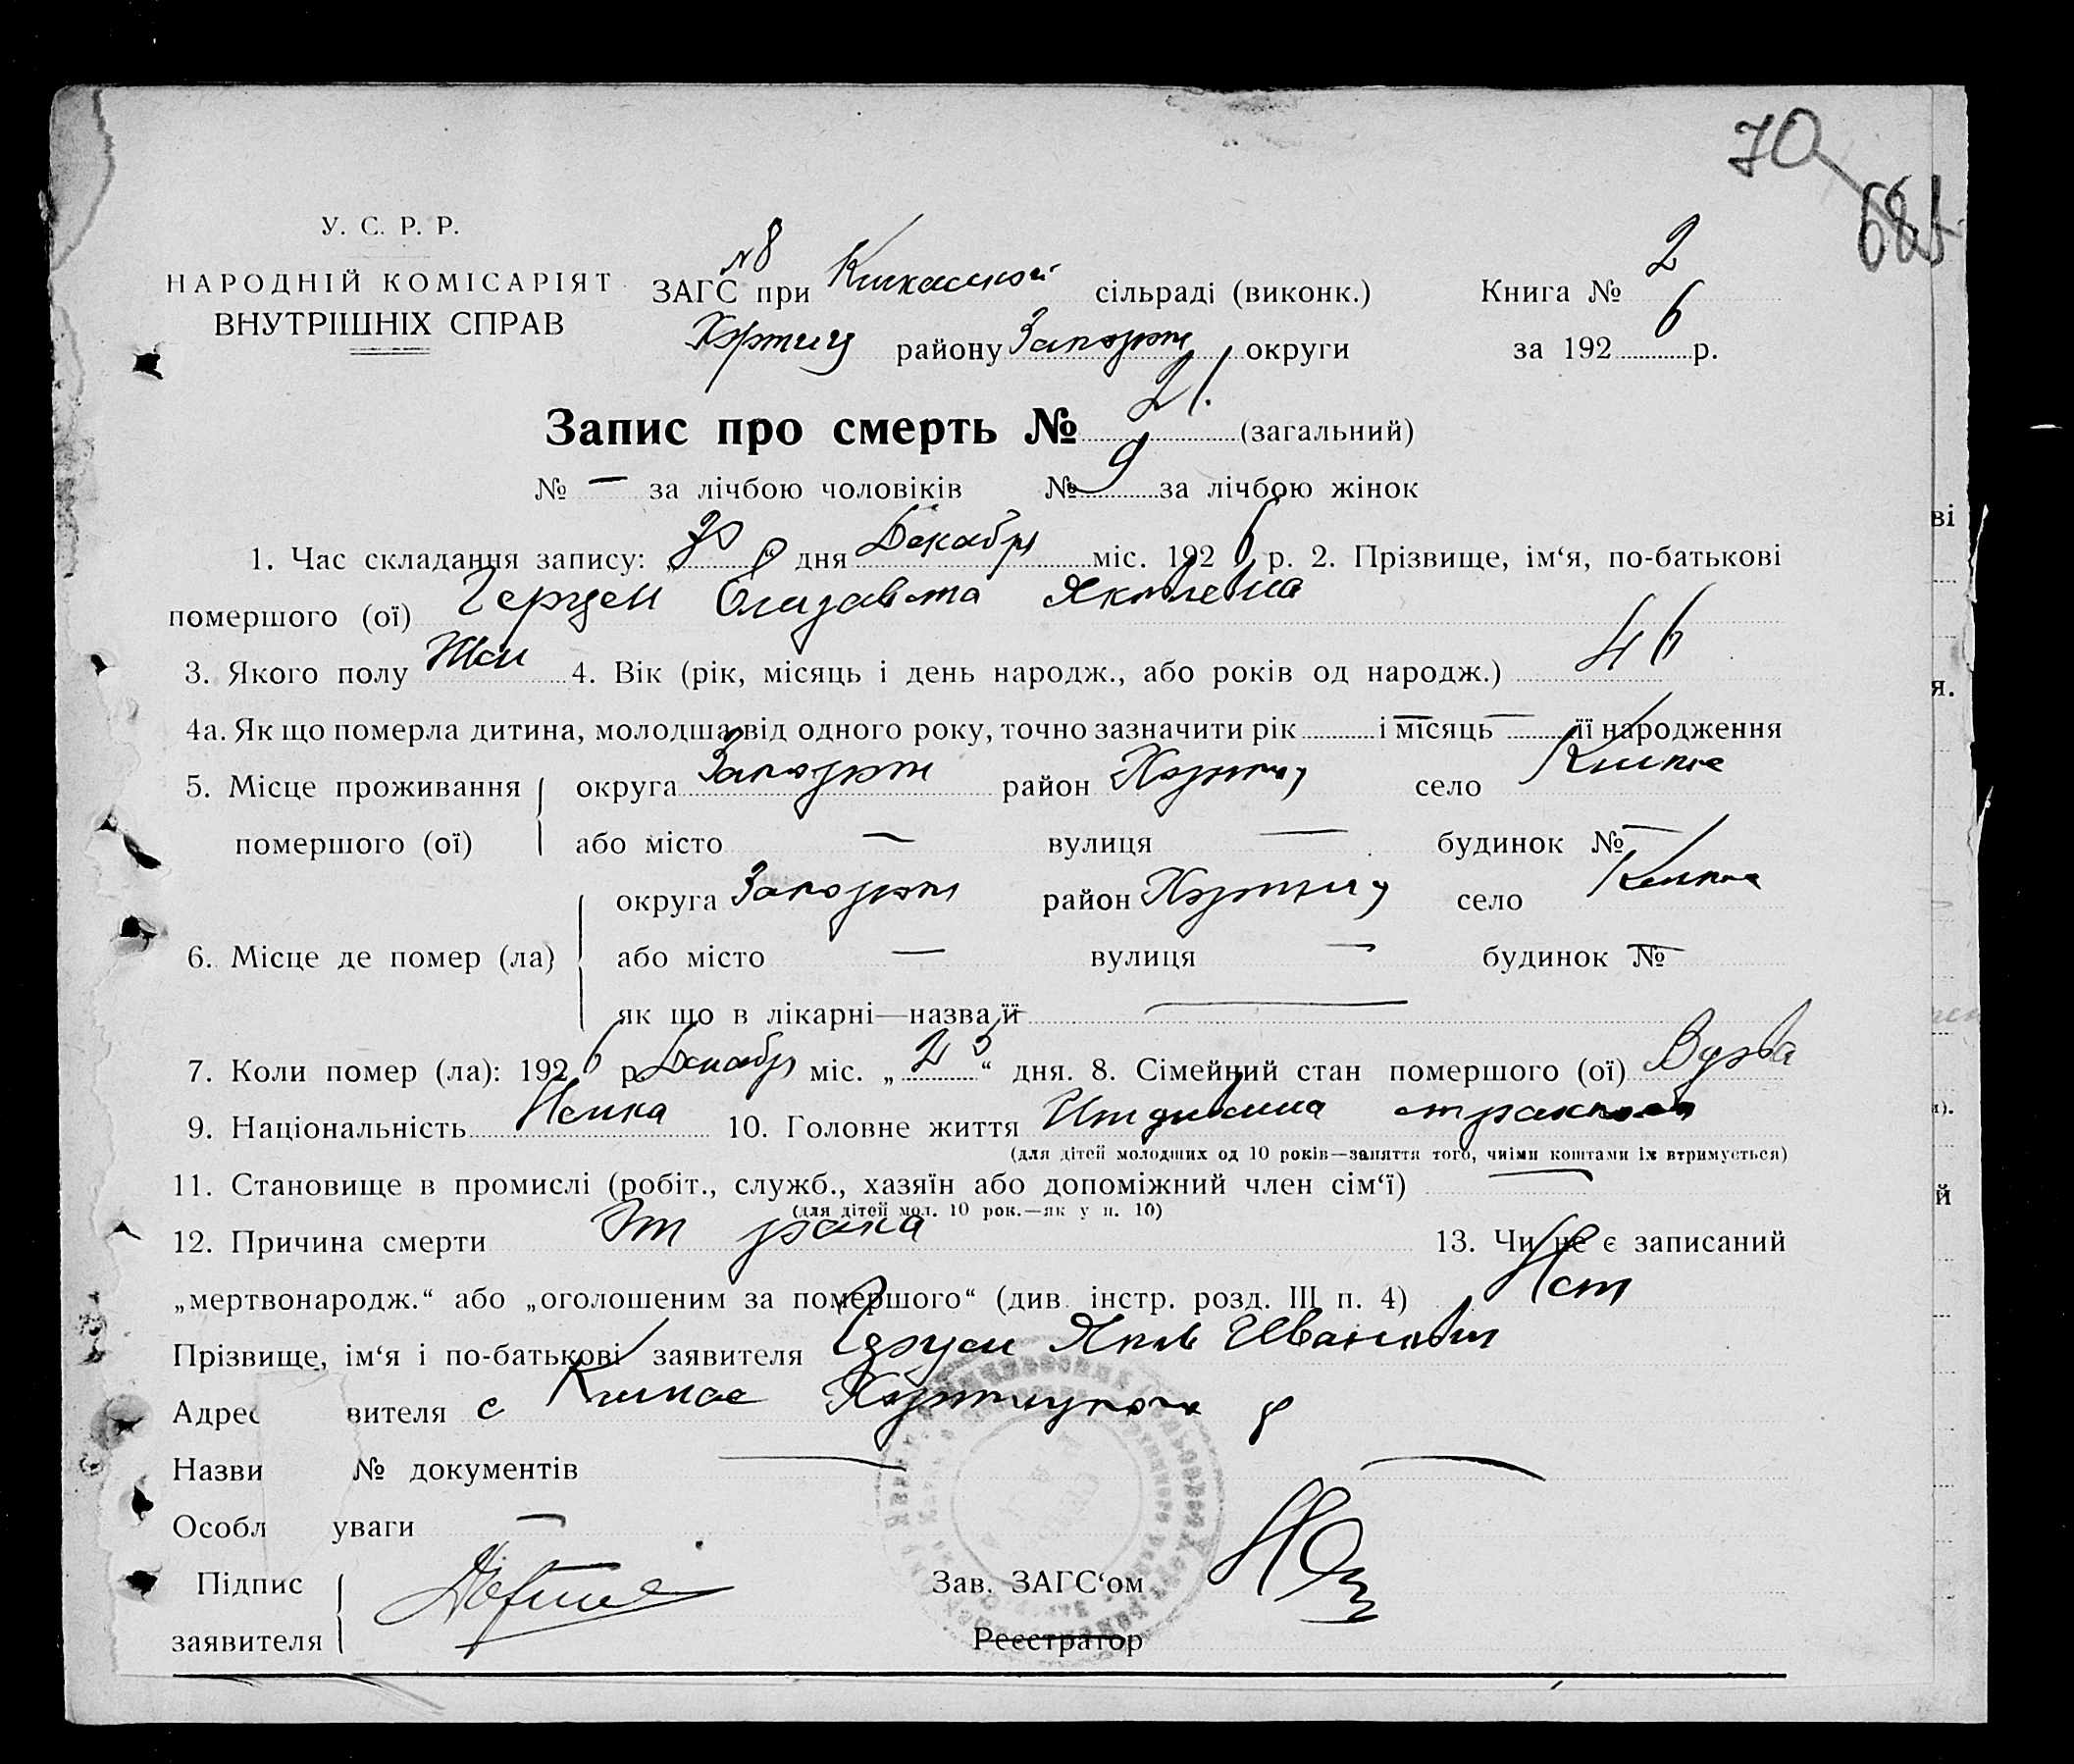 70
68
У. С. Р. Р.
НАРОДНІЙ КОМІСАРІЯТ
ВНУТРІШНІХ СПРАВ
№ 8
ЗАГС при Кичкаской сільраді (виконк.)
Хортиц району Запорож округи
Книга № 2
за 1926 р.
Запис про смерть № 21. (загальний)
№ — за лічбою чоловіків № 9 за лічбою жінок
1. Час складання запису: „30“ дня Декабря міс. 1926 р. 2. Прізвище, ім‘я, по-батькові
помершого (ої) Герцен Елизавета Яковлевна
3. Якого полу Жен 4. Вік (рік, місяць і день народж., або років од народж.) 46
4а. Як що померла дитина, молодша від одного року, точно зазначити рік — і місяць — її народження
5. Місце проживання помершого (ої) округа Запорож район Хортиц село Кичкас
або місто — вулиця — будинок № —
6. Місце де помер (ла) округа Запорож район Хортиц село Кичкас
або місто — вулиця — будинок № —
як що в лікарні—назва її —
7. Коли помер (ла): 1926 р. Декабр міс. „25“ дня. 8. Сімейний стан помершого (ої) Вдова
9. Національність Немка 10. Головне життя Иждивенка
(для дітей молодших од 10 років—заняття того, чиїми коштами їх втримується)
11. Становище в промислі (робіт., служб., хазяїн або допоміжний член сім‘ї) —
(для дітей мол. 10 рок.—як у п. 10)
12. Причина смерти От рака 13. Чи не є записаний
„мертвонародж.“ або „оголошеним за помершого“ (див. інстр. розд. III п. 4) Нет
Прізвище, ім‘я і по-батькові заявителя Яков Иванович
Адрес вителя с Кичкас Хортицкого р
Назви № документів —
Особл уваги —
Підпис
заявителя
Зав. ЗАГС‘ом
Реєстратор